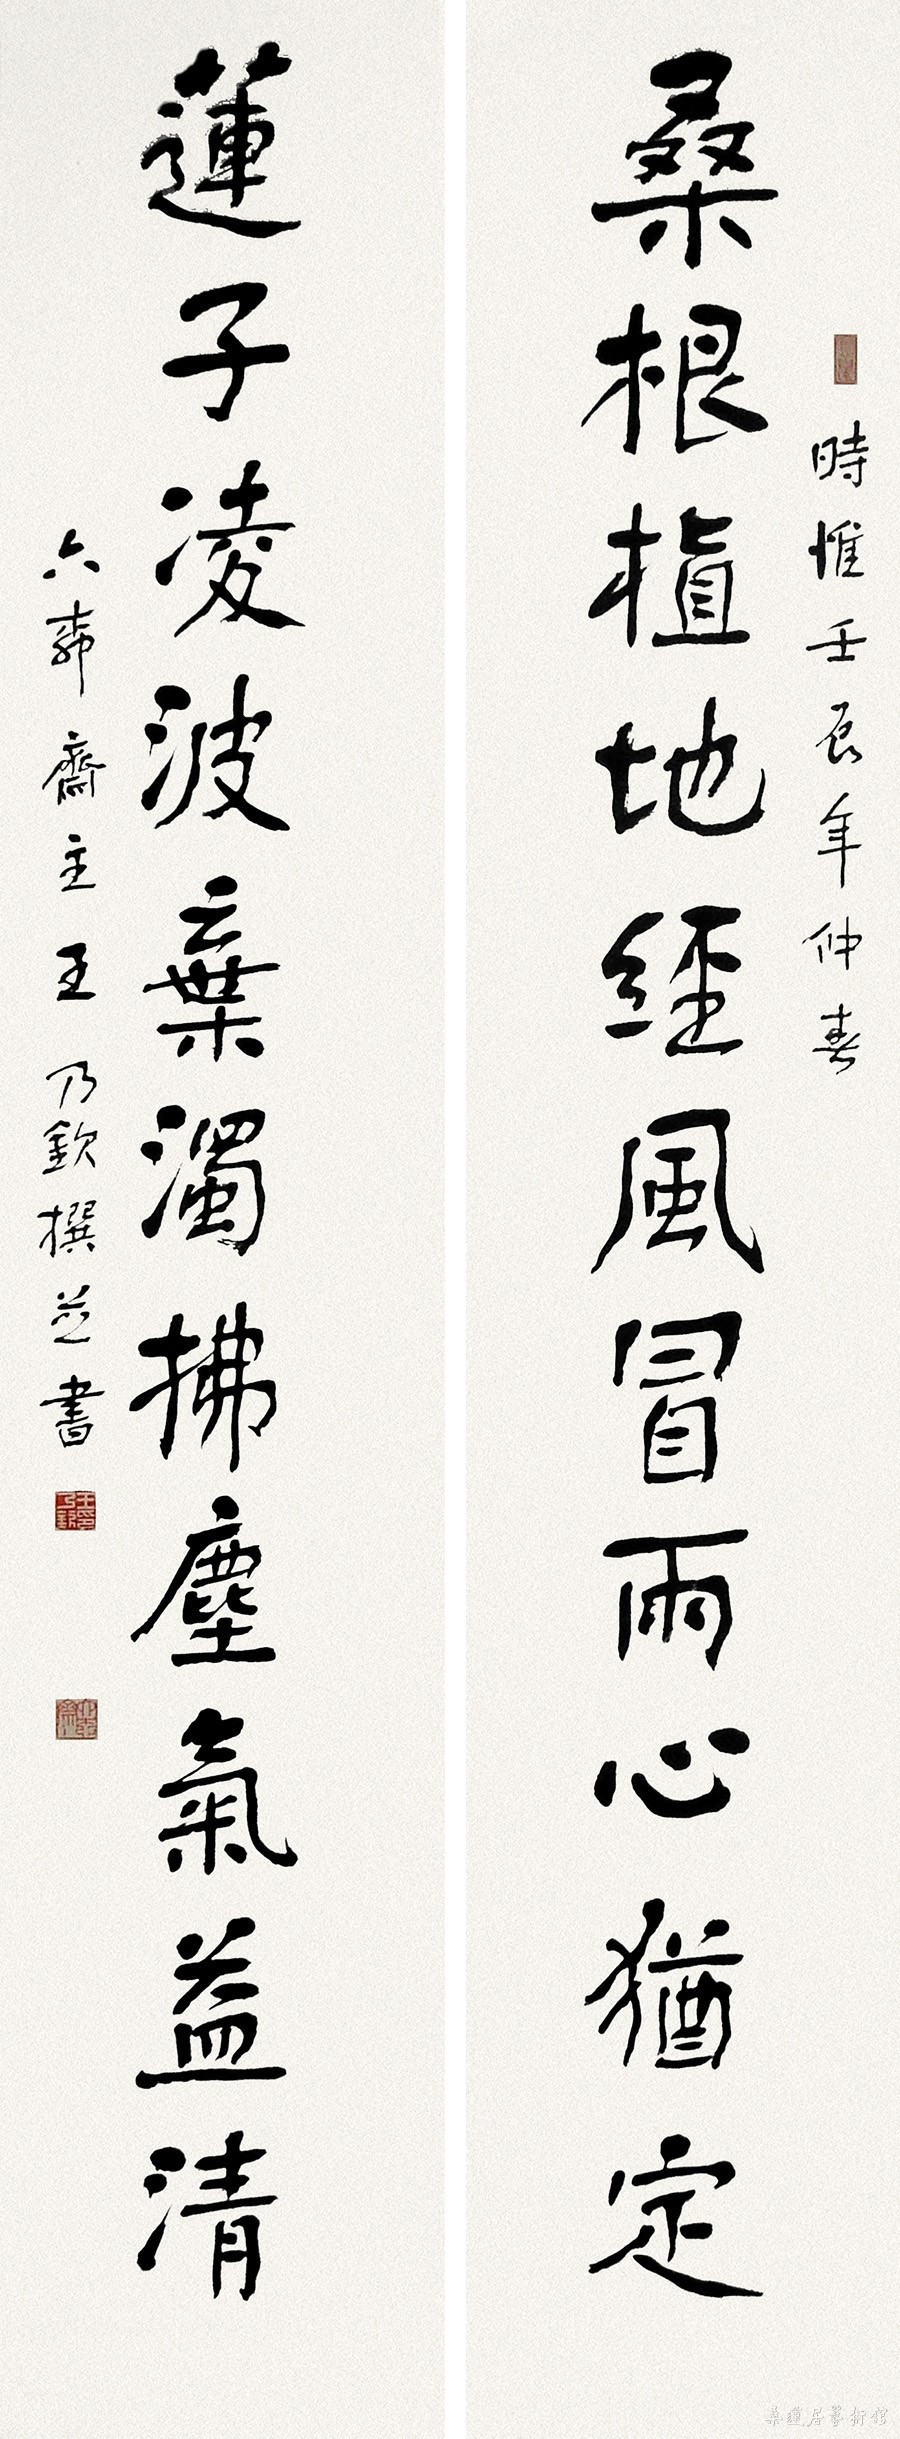 時惟壬辰年仲春
桑根植地經風冒雨心猶定
蓮子凌波棄濁拂塵氣益清
六弗齋主王乃欽撰並書
桑蓮居藝術館